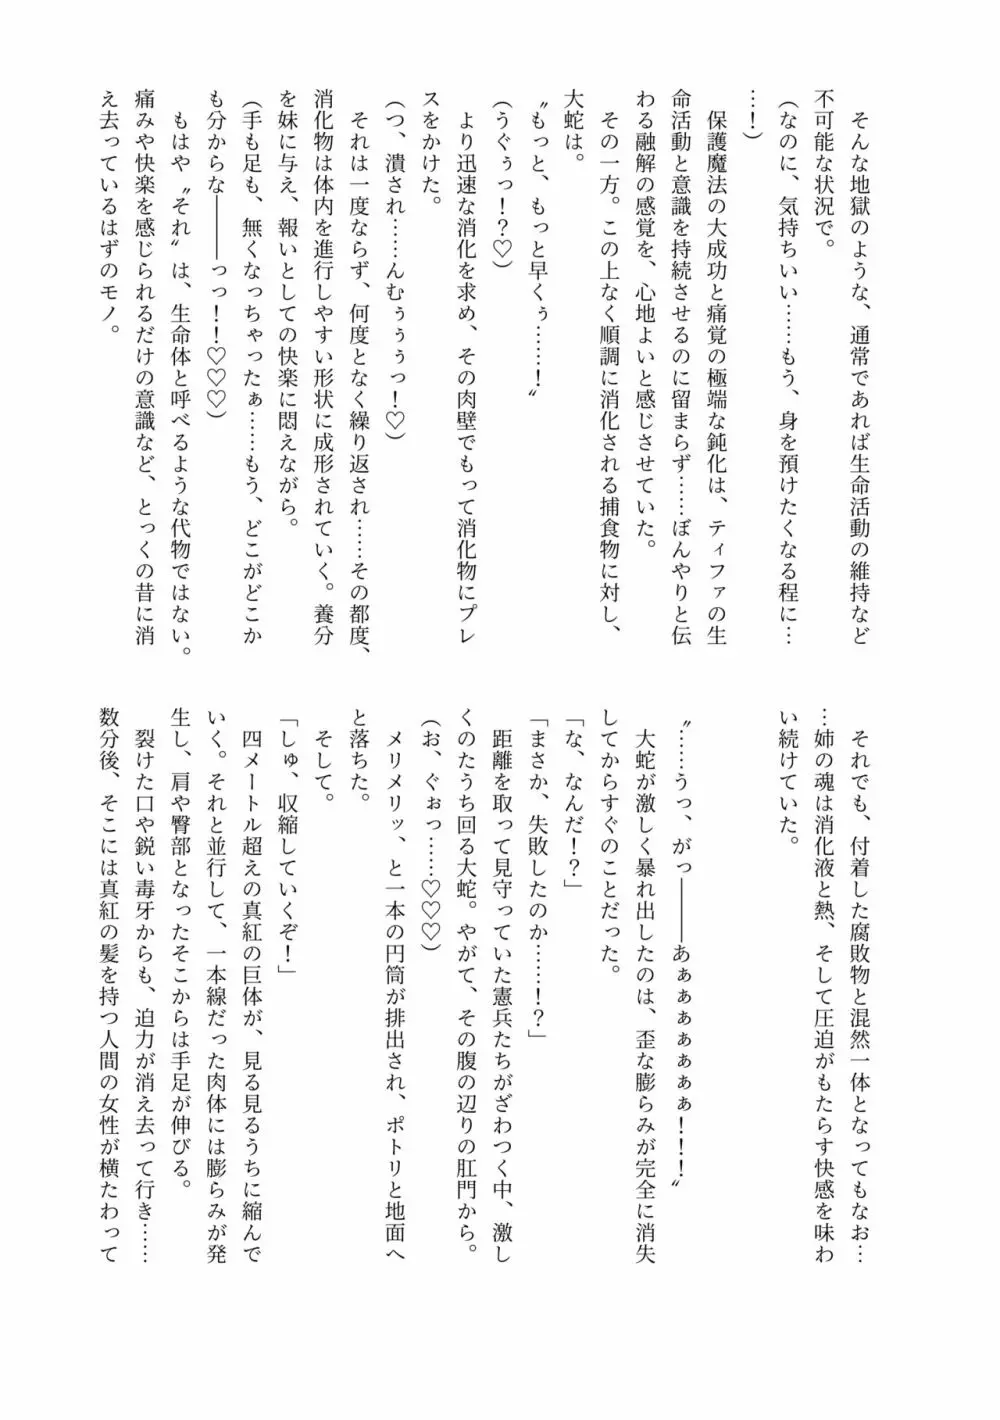 そんな地獄のような、通常であれば生命活動の維持など
不可能な状況で。
（なのに、気持ちいい……もう、身を預けたくなる程に…
…！）
　保護魔法の大成功と痛覚の極端な鈍化は、ティファの生
命活動と意識を持続させるのに留まらず……ぼんやりと伝
わる融解の感覚を、心地よいと感じさせていた。
　その一方。この上なく順調に消化される捕食物に対し、
大蛇は。
〝もっと、もっと早くぅ……！〟
（うぐぅっ！？♡）
　より迅速な消化を求め、その肉壁でもって消化物にプレ
スをかけた。
（つ、潰され……んむぅぅぅっ！♡）
　それは一度ならず、何度となく繰り返され……その都度、
消化物は体内を進行しやすい形状に成形されていく。養分
を妹に与え、報いとしての快楽に悶えながら。
（手も足も、無くなっちゃったぁ……もう、どこがどこか
も分からな――っっ！！♡♡♡）
　もはや〝それ〟は、生命体と呼べるような代物ではない。
痛みや快楽を感じられるだけの意識など、とっくの昔に消
え去っているはずのモノ。
　それでも、付着した腐敗物と混然一体となってもなお…
…姉の魂は消化液と熱、そして圧迫がもたらす快感を味わ
い続けていた。
〝……うっ、がっ――あぁぁぁぁぁぁぁ！！！〟
　大蛇が激しく暴れ出したのは、歪な膨らみが完全に消失
してからすぐのことだった。
「な、なんだ！？」
「まさか、失敗したのか……！？」
　距離を取って見守っていた憲兵たちがざわつく中、激し
くのたうち回る大蛇。やがて、その腹の辺りの肛門から。
（お、ぐぉっ……♡♡♡）
　メリメリッ、と一本の円筒が排出され、ポトリと地面へ
と落ちた。
　そして。
「しゅ、収縮していくぞ！」
　四メートル超えの真紅の巨体が、見る見るうちに縮んで
いく。それと並行して、一本線だった肉体には膨らみが発
生し、肩や臀部となったそこからは手足が伸びる。
　裂けた口や鋭い毒牙からも、迫力が消え去って行き……
数分後、そこには真紅の髪を持つ人間の女性が横たわって